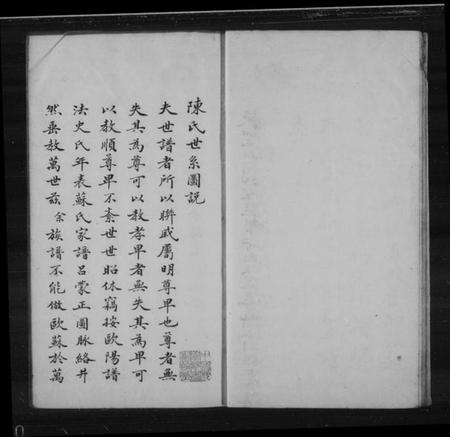 陳氏世系圖説
夫世譜者所以聯戚屬明尊卑也尊者無
失其為尊可以教孝卑者無失其為卑可
以教順尊卑不紊世世昭休竊按歐陽譜
法史氏年表蘇氏家譜呂蒙正圖脉絡井
然垂教萬世兹余族譜不能倣歐蘇於萬